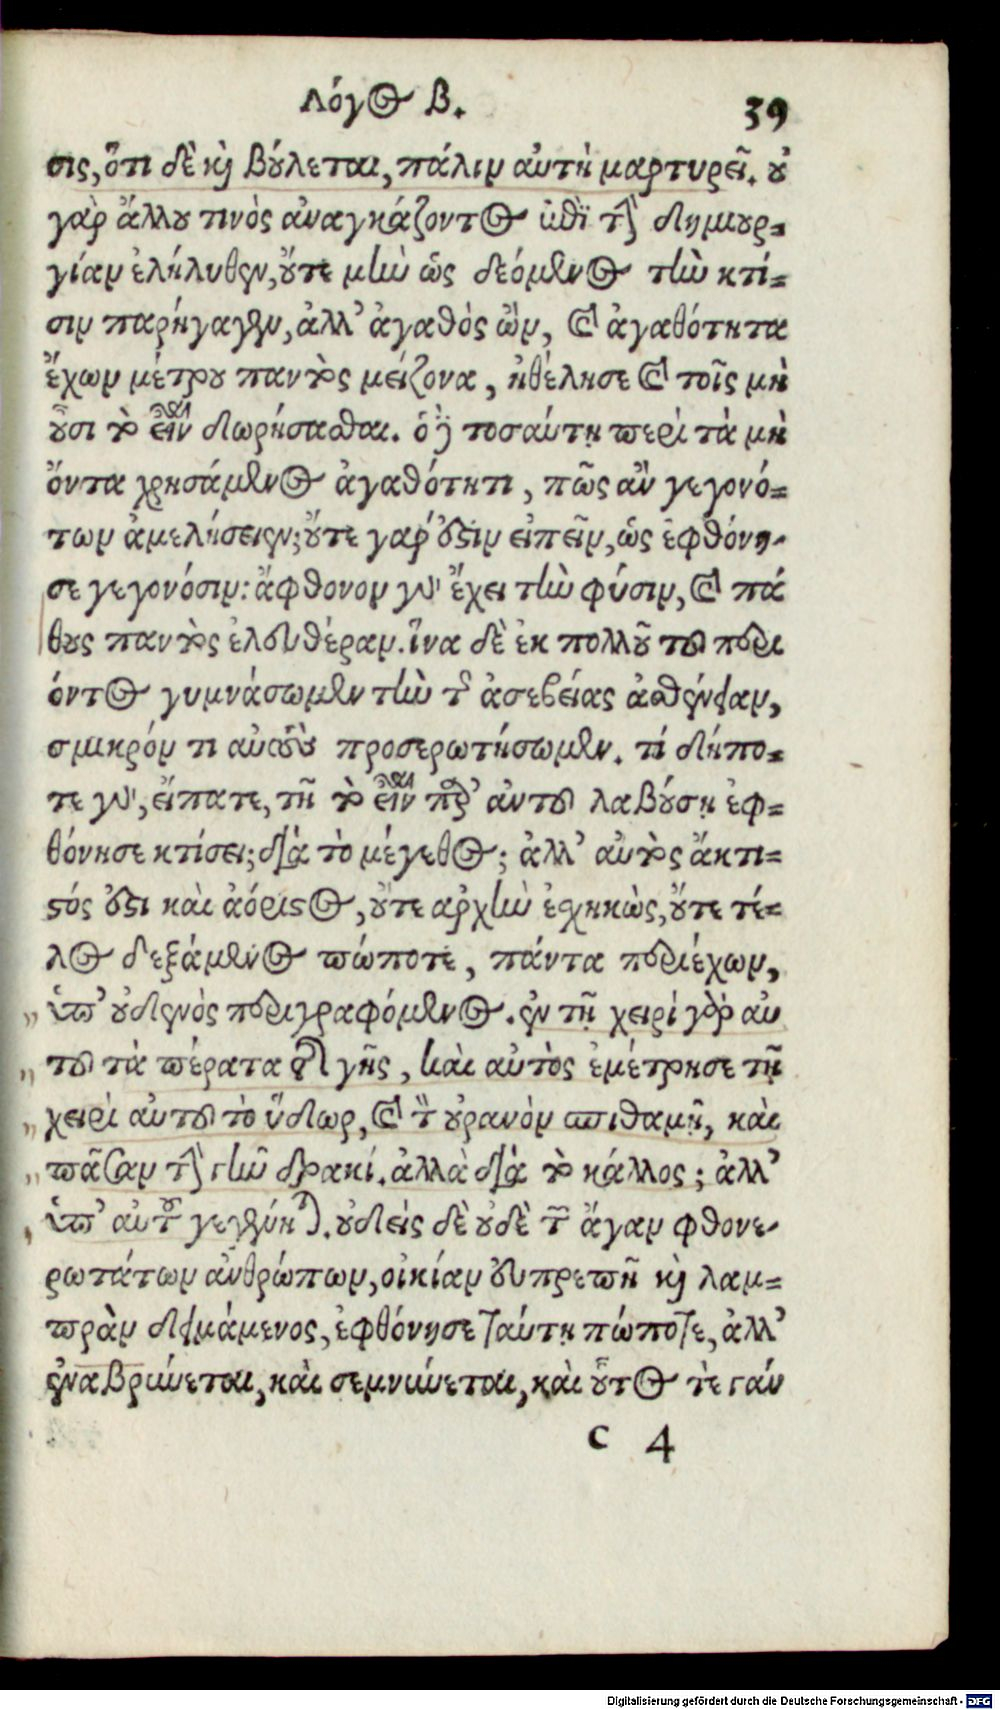 Λόγος β. 39
σις, ὅτι δὲ καὶ βούλεται, πάλιν αὐτὴ μαρτυρεῖ. οὐ
γὰρ ἄλλου τινὸς ἀναγκάζοντος ἐπὶ τὴν δημιουρ-
γίαν ἐλήλυθεν, οὔτε μὴν ὡς δεόμενος τὴν κτί-
σιν παρήγαγεν, ἀλλ' ἀγαθὸς ὢν, καὶ ἀγαθότητα
ἔχων μέτρου παντὸς μείζονα, ἠθέλησε καὶ τοῖς μὴ
οὖσι τὸ εἶναι δωρήσασθαι. ὁ δὲ τοσαύτῃ περὶ τὰ μὴ
ὄντα χρησάμενος ἀγαθότητι, πῶς ἂν γεγονό-
των ἀμελήσειεν; οὔτε γάρ ἐστιν εἰπεῖν, ὡς ἐφθόνη-
σε γεγονόσιν: ἄφθονον γὰρ ἔχει τὴν φύσιν, καὶ πά
θους παντὸς ἐλευθέραν. ἵνα δὲ ἐκ πολλοῦ τοῦ περι
όντος γυμνάσωμεν τὴν τῆς ἀσεβείας ἀσθένειαν,
σμικρόν τι αὐτοὺς προσερωτήσωμεν. τί δήπο-
τε γὰρ, εἴπατε, τῇ τὸ εἶναι παρ' αὐτοῦ λαβούσῃ ἐφ-
θόνησε κτίσει; διὰ τὸ μέγεθος; ἀλλ' αὐτὸς ἄκτι-
στός ἐστι καὶ ἀόριστος, οὔτε ἀρχὴν ἐσχηκὼς, οὔτε τέ-
λος δεξάμενος πώποτε, πάντα περιέχων,
" ὑπ' οὐδενὸς περιγραφόμενος. ἐν τῇ χειρὶ γὰρ αὐ
" τοῦ τὰ πέρατα τῆς γῆς, καὶ αὐτὸς ἐμέτρησε τῇ
" χειρὶ αὐτοῦ τὸ ὕδωρ, καὶ τὸν οὐρανὸν σπιθαμῇ, καὶ
" πᾶσαν τὴν γῆν δρακί. ἀλλὰ διὰ τὸ κάλλος; ἀλλ'
, ὑπ' αὐτοῦ γεγένηται. οὐδεὶς δὲ οὐδὲ τῶν ἄγαν φθονε-
ρωτάτων ἀνθρώπων, οἰκίαν εὐπρεπῆ καὶ λαμ-
πρὰν δειμάμενος, ἐφθόνησε ταύτῃ πώποτε, ἀλλ'
ἐναβρύνεται, καὶ σεμνύνεται, καὶ οὗτος τε γάν
c 4
Digitalisierung gefördert durch die Deutsche Forschungsgemeinschaft - DFG